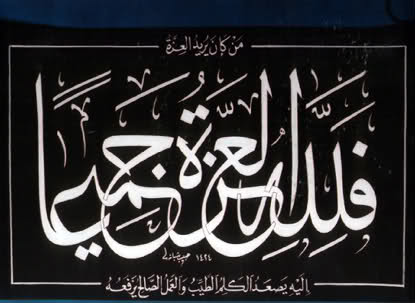 مَن كَانَ يُرِيدُ العِزَّةَ
فَلِلَّهِ العِزَّةُ جَمِيعًا
١٤٢٤
إِلَيْهِ يَصْعَدُ الكَلِمُ الطَّيِّبُ وَالعَمَلُ الصَّالِحُ يَرْفَعُهُ